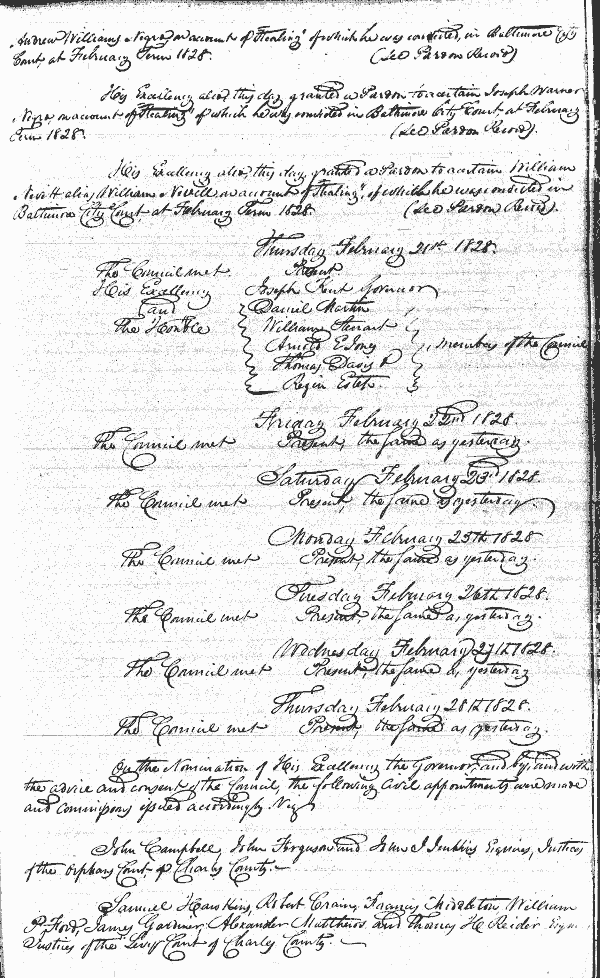 Andrew Williams Negro on account of "Stealing" of which he was convicted, in Baltimore City
Court at February Term 1828. (See Pardon Record)
His Excellency also, this day granted a Pardon to a certain Joseph Warner
Negro, on account of "Stealing" of which he was convicted in Baltimore City Court, at February
Term 1828. (See Pardon Record).
His Excellency also, this day, granted a Pardon to a certain William
Nevitt alias William Nevill on account of "Stealing", of which he was convicted in
Baltimore City Court, at February Term. 1828. (See Pardon Record).
Thursday February 21st. 1828.
The Council met Present
His Excellency Joseph Kent Governor
and Daniel Martin
The Honble William Stewart
Arnold E Jones members of the Council
Thomas Davis &
Rezin Estep.
Friday February 22nd 1828
The Council met Present, the same as yesterday.
Saturday February 23rd 1828.
The Council met Present, the same as yesterday.
Monday February 25th 1828
The Council met Present, the same as yesterday.
Tuesday February 26th 1828.
The Council met Present, the same as yesterday.
Wednesday February 27th 1828.
The Council met Present, the same as yesterday
Thursday February 28th 1828.
The Council met Present, the same as yesterday.
On the Nomination of His Excellency the Governor, and by, and with
the advice and consent of the Council, the following Civil appointments were made
and commissions issued accordingly. Viz
John Campbell, John Ferguson and John I Jenkins Esquires, Justices
of the Orphans Court of Charles County.
Samuel Hawkins, Robert Crain, Francis Middleton, William
P. Ford, James Gardiner, Alexander Matthews, and Thomas H Reeder Esqrs.
Justices of the Levy Court of Charles County.